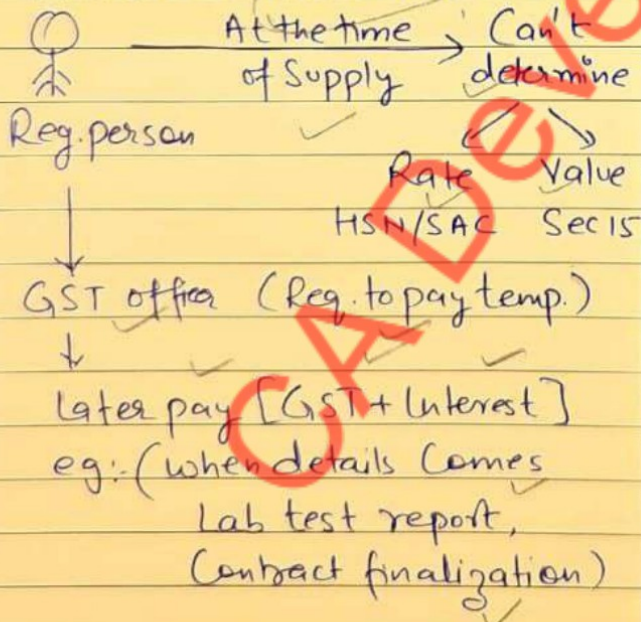 At the time
of Supply
Can't
determine
Reg. person
Rate
Value
HSN/SAC
Sec 15
GST officer (Req. to pay temp.)
Later pay [GST + Interest]
eg:- (when details Comes
Lab test report,
Contract finalization)
CA Deve